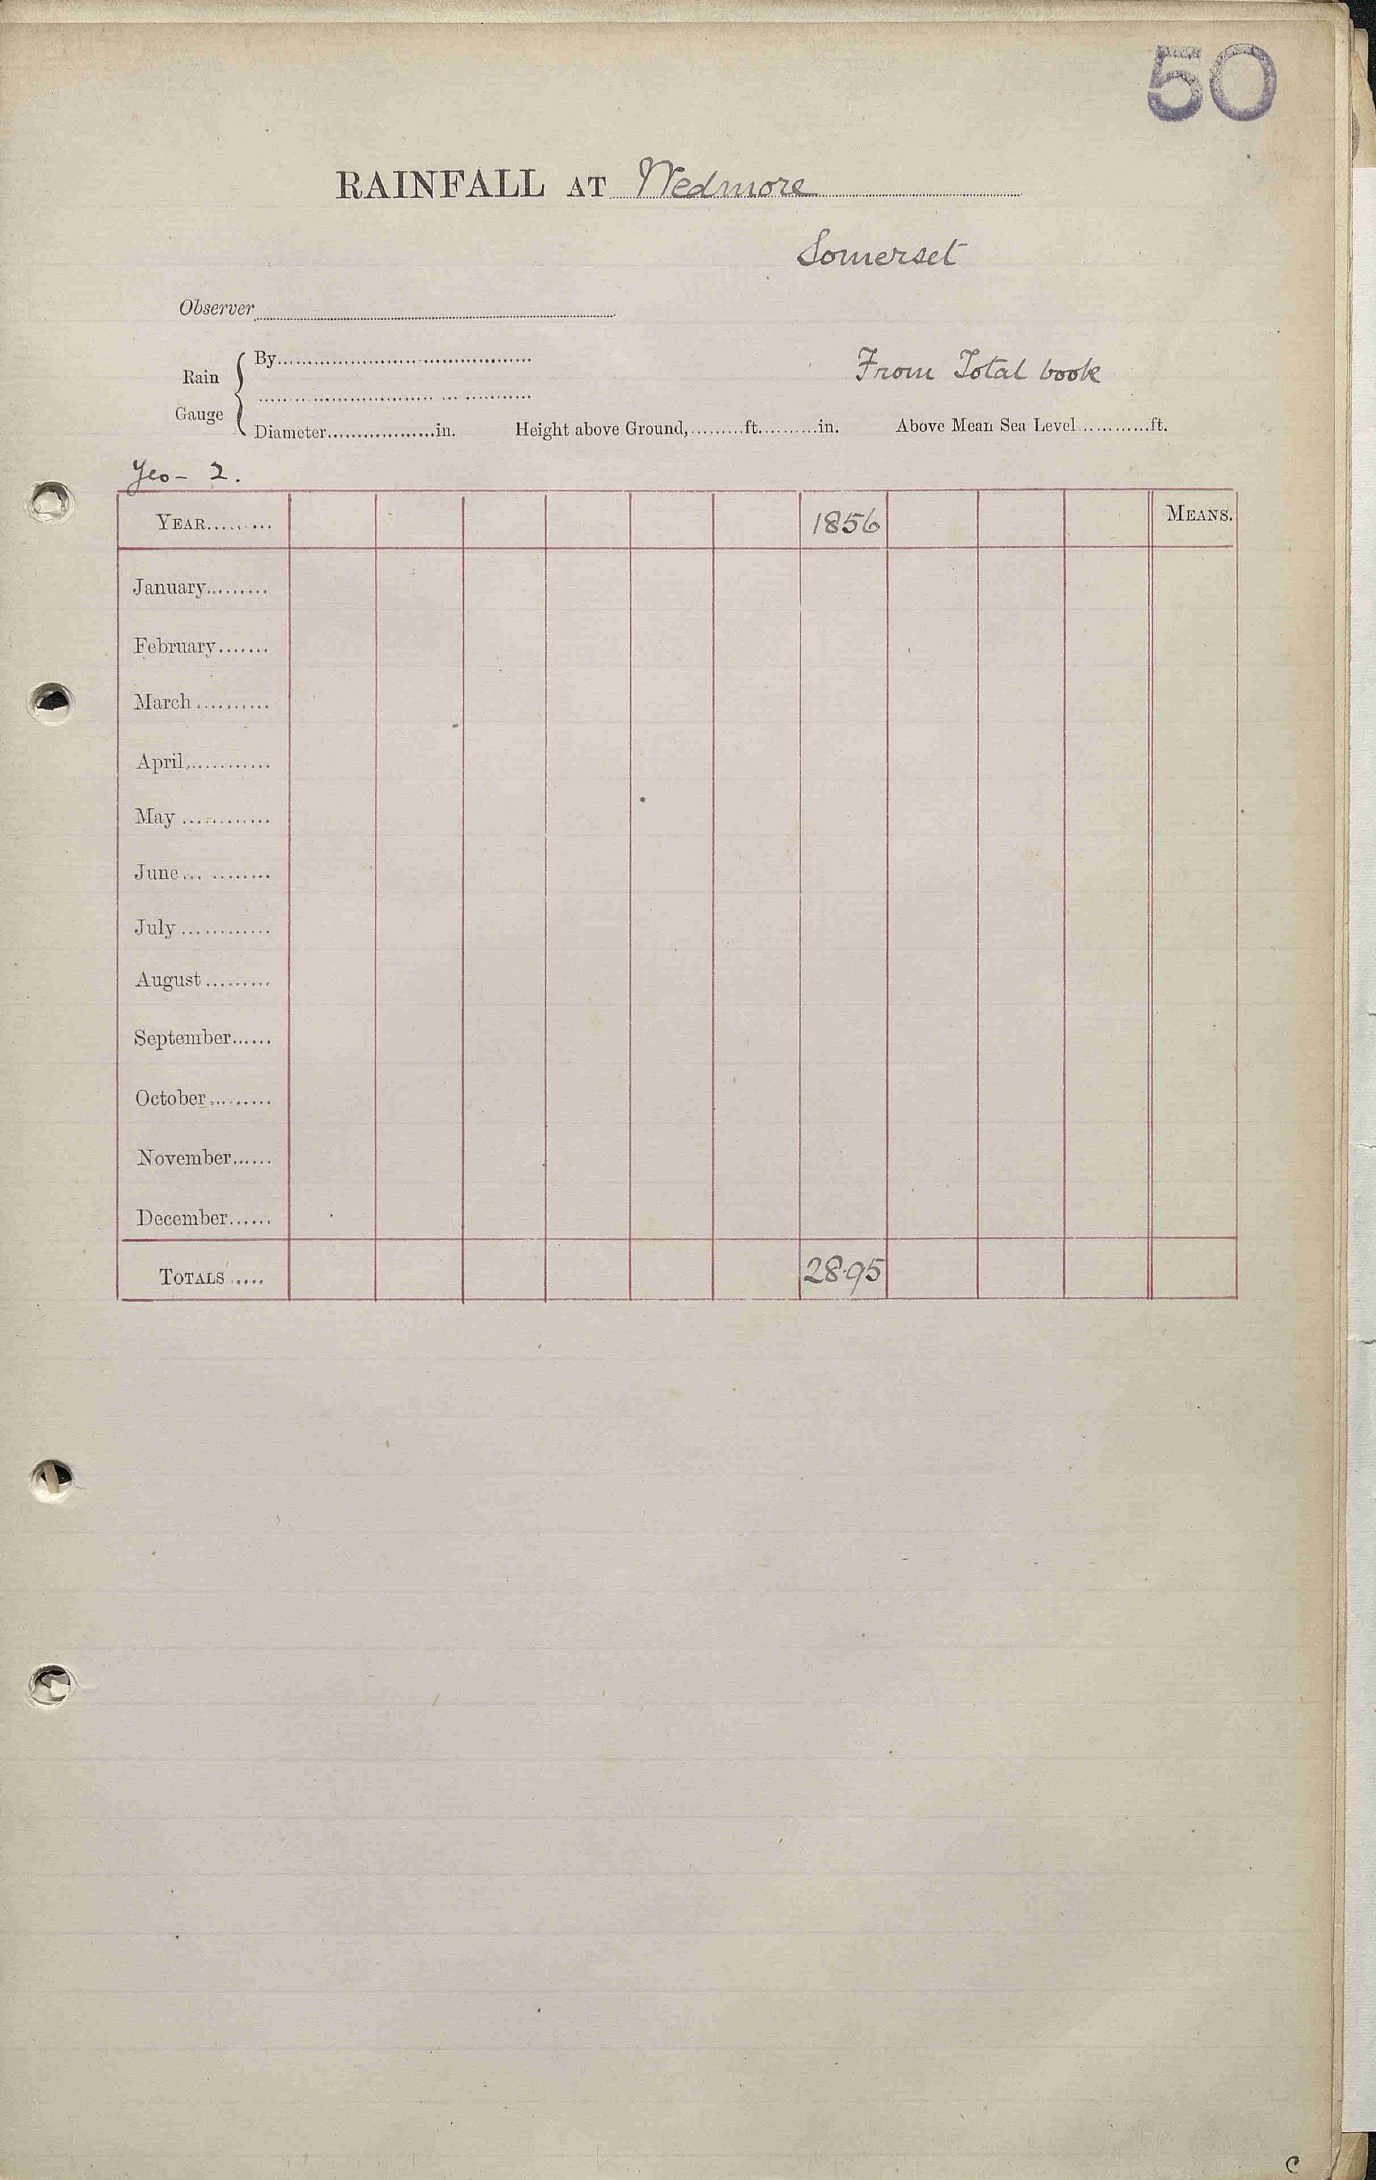 50
RAINFALL AT Wedmore
Somerset
Observer
Rain Gauge
By
From Total book
Diameter in. Height above Ground, ft. in. Above Mean Sea Level ft.
Yeo - 2.
YEAR 1856 MEANS.
January
February
March
April
May
June
July
August
September
October
November
December
TOTALS 28.95
C